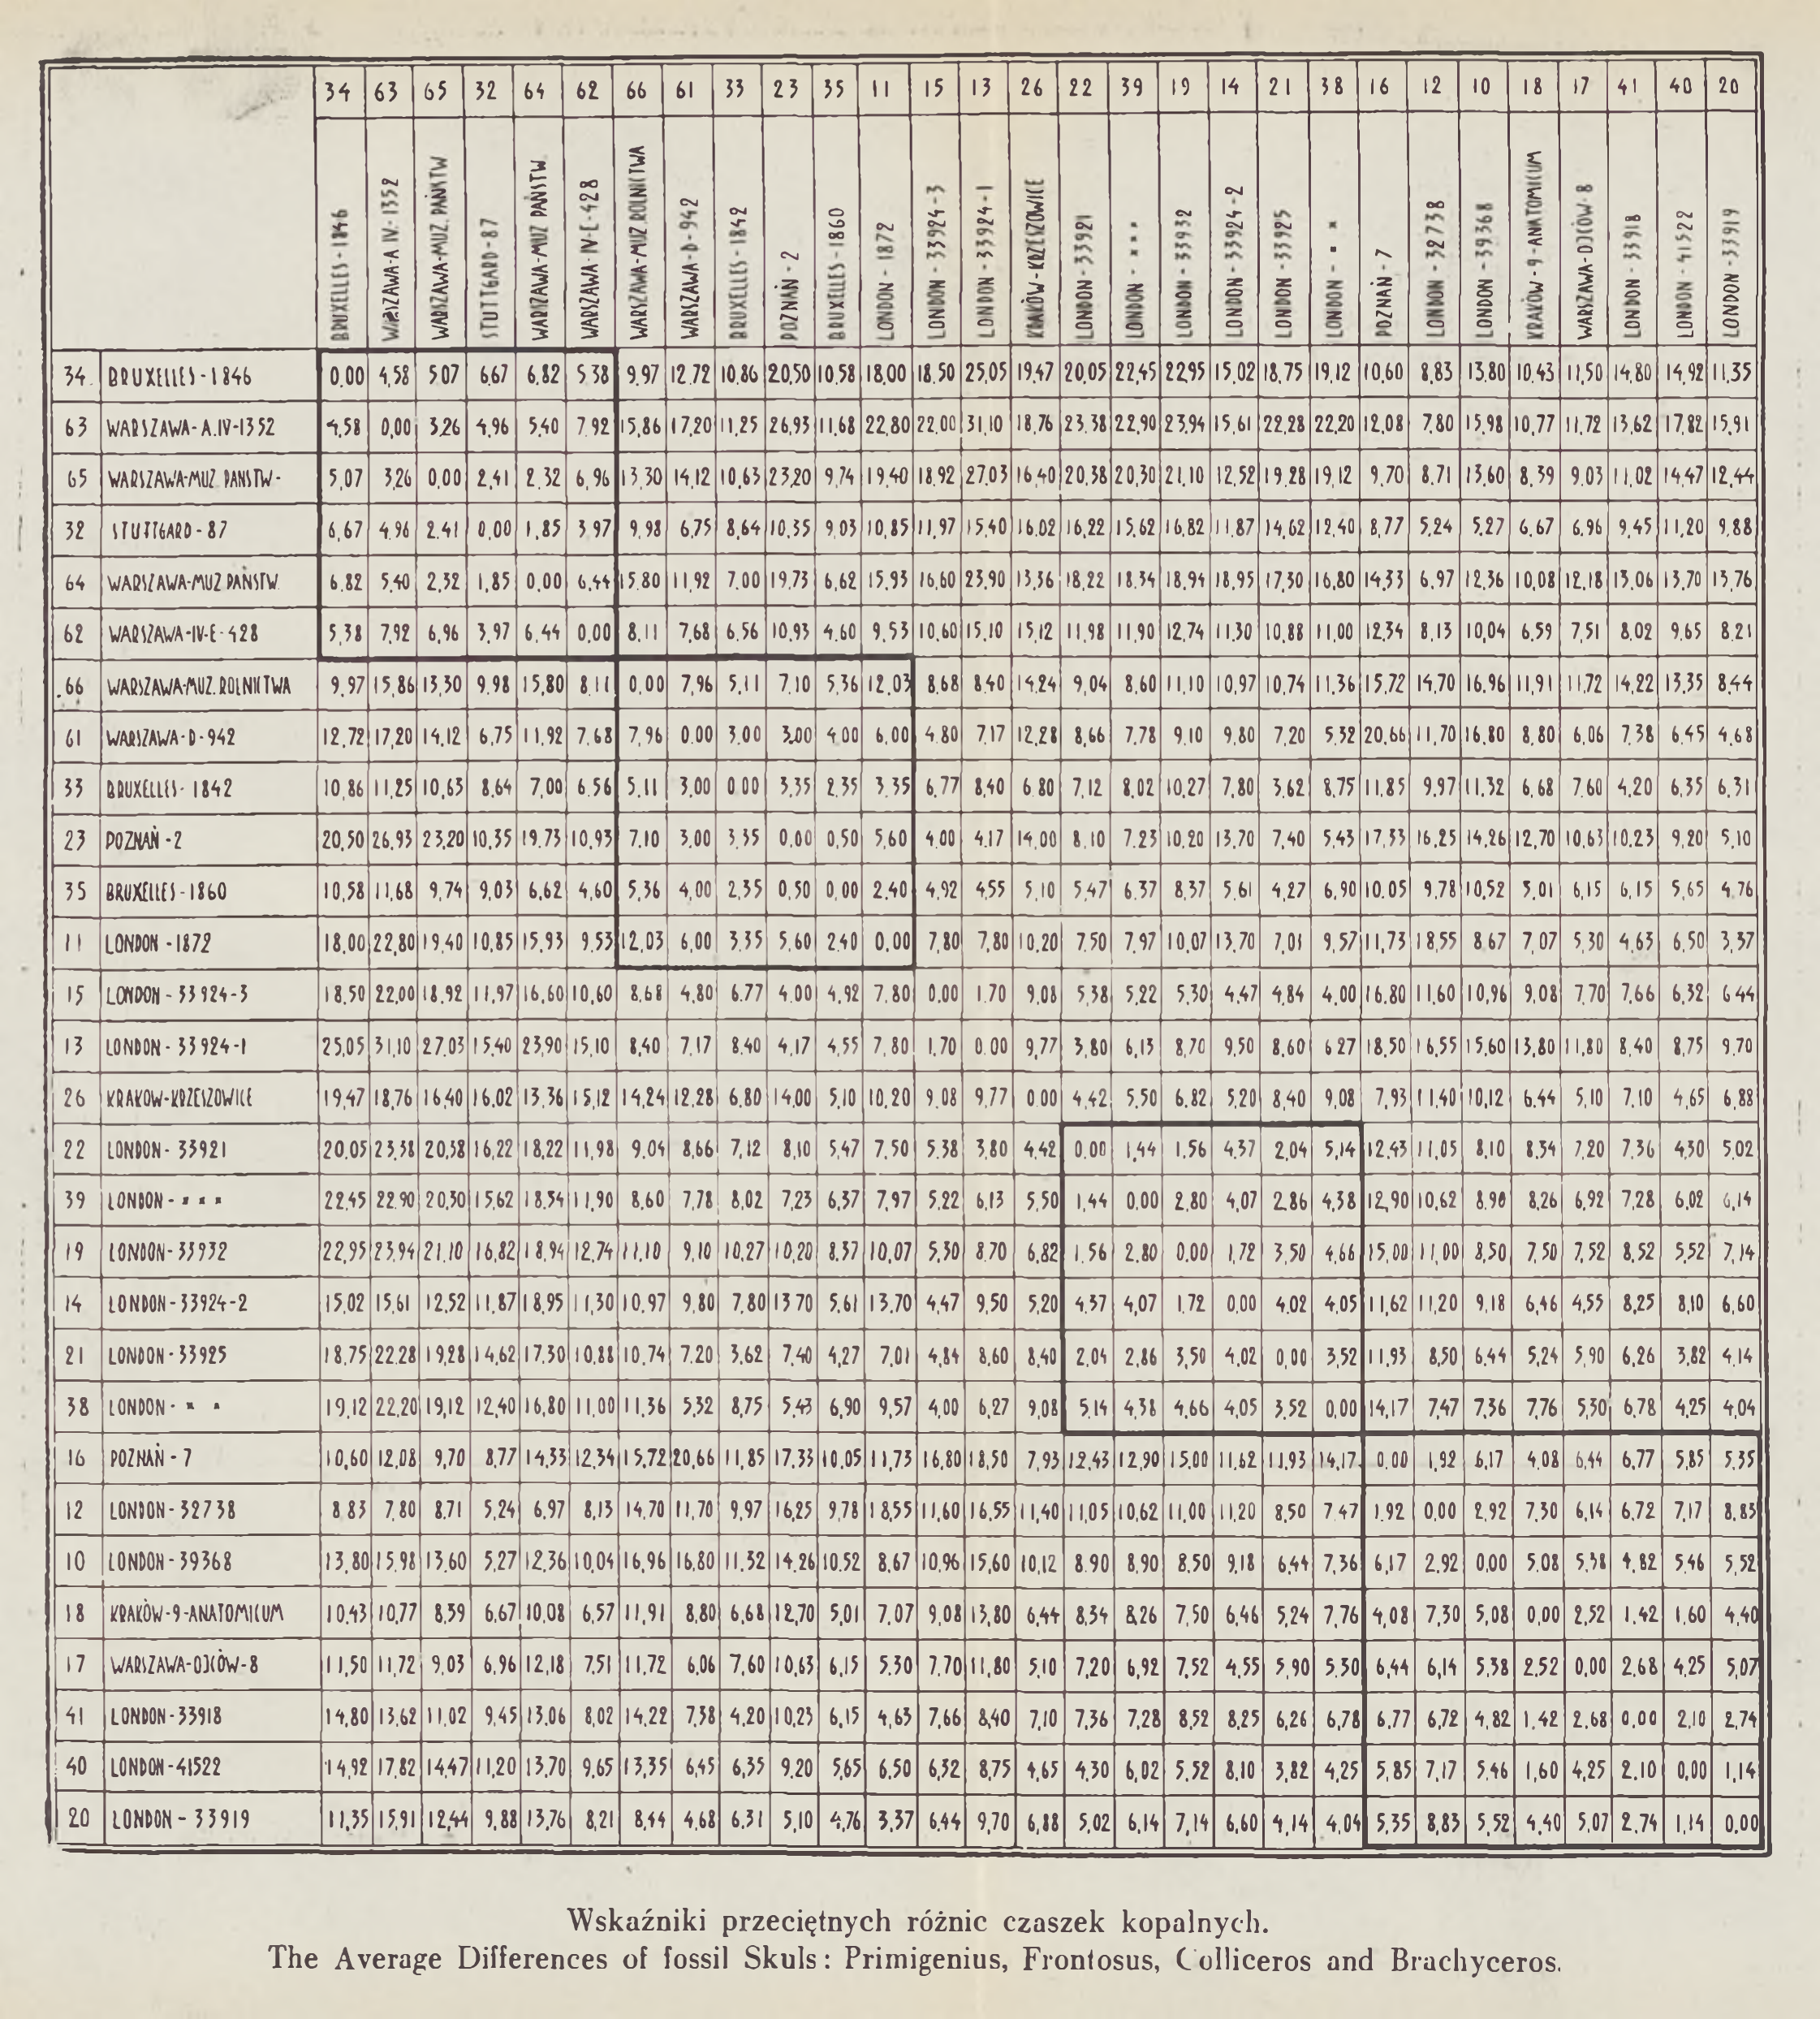 34 63 65 32 64 62 66 61 33 23 35 11 15 13 26 22 39 19 14 21 38 16 12 10 18 17 41 40 20
BRUXELLES-1846
WARSZAWA-A IV-1352
WARSZAWA-MUZ. PAŃSTW
STUTTGARD-87
WARSZAWA-MUZ PAŃSTW.
WARSZAWA-IV-E-428
WARSZAWA-MUZ.ROLNICTWA
WARSZAWA-D-942
BRUXELLES-1842
POZNAŃ-2
BRUXELLES-1860
LONDON-1872
LONDON-33924-3
LONDON-33924-1
KRAKÓW-KRZESZOWICE
LONDON-33921
LONDON-***
LONDON-33932
LONDON-33924-2
LONDON-33925
LONDON-* *
POZNAŃ-7
LONDON-32738
LONDON-39368
KRAKÓW-9-ANATOMICUM
WARSZAWA-OJCÓW-8
LONDON-33918
LONDON-41522
LONDON-33919
34 BRUXELLES-1846 0,00 4,58 5,07 6,67 6,82 5,38 9,97 12,72 10,86 20,50 10,58 18,00 18,50 25,05 19,47 20,05 22,45 22,95 15,02 18,75 19,12 10,60 8,83 13,80 10,43 11,50 14,80 14,92 11,35
63 WARSZAWA-A.IV-1352 4,58 0,00 3,26 4,96 5,40 7,92 15,86 17,20 11,25 26,93 11,68 22,80 22,00 31,10 18,76 23,38 22,90 23,94 15,61 22,28 22,20 12,08 7,80 15,98 10,77 11,72 13,62 17,82 15,91
65 WARSZAWA-MUZ PANSTW- 5,07 3,26 0,00 2,41 2,32 6,96 13,30 14,12 10,63 23,20 9,74 19,40 18,92 27,03 16,40 20,38 20,30 21,10 12,52 19,28 19,12 9,70 8,71 13,60 8,39 9,03 11,02 14,47 12,44
32 STUTTGARD-87 6,67 4,96 2,41 0,00 1,85 3,97 9,98 6,75 8,64 10,35 9,03 10,85 11,97 15,40 16,02 16,22 15,62 16,82 11,87 14,62 12,40 8,77 5,24 5,27 6,67 6,96 9,45 11,20 9,88
64 WARSZAWA-MUZ PAŃSTW. 6,82 5,40 2,32 1,85 0,00 6,44 15,80 11,92 7,00 19,73 6,62 15,93 16,60 23,90 13,36 18,22 18,34 18,94 18,95 17,30 16,80 14,33 6,97 12,36 10,08 12,18 13,06 13,70 13,76
62 WARSZAWA-IV-E-428 5,38 7,92 6,96 3,97 6,44 0,00 8,11 7,68 6,56 10,93 4,60 9,53 10,60 15,10 15,12 11,98 11,90 12,74 11,30 10,88 11,00 12,34 8,13 10,04 6,59 7,51 8,02 9,65 8,21
66 WARSZAWA-MUZ.ROLNICTWA 9,97 15,86 13,30 9,98 15,80 8,11 0,00 7,96 5,11 7,10 5,36 12,03 8,68 8,40 14,24 9,04 8,60 11,10 10,97 10,74 11,36 15,72 14,70 16,96 11,91 11,72 14,22 13,35 8,44
61 WARSZAWA-D-942 12,72 17,20 14,12 6,75 11,92 7,68 7,96 0,00 3,00 3,00 4,00 6,00 4,80 7,17 12,28 8,66 7,78 9,10 9,80 7,20 5,32 20,66 11,70 16,80 8,80 6,06 7,38 6,45 4,68
33 BRUXELLES-1842 10,86 11,25 10,63 8,64 7,00 6,56 5,11 3,00 0,00 3,35 2,35 3,35 6,77 8,40 6,80 7,12 8,02 10,27 7,80 3,62 8,75 11,85 9,97 11,32 6,68 7,60 4,20 6,35 6,31
23 POZNAŃ-2 20,50 26,93 23,20 10,35 19,73 10,93 7,10 3,00 3,35 0,00 0,50 5,60 4,00 4,17 14,00 8,10 7,23 10,20 13,70 7,40 5,43 17,33 16,25 14,26 12,70 10,63 10,23 9,20 5,10
35 BRUXELLES-1860 10,58 11,68 9,74 9,03 6,62 4,60 5,36 4,00 2,35 0,50 0,00 2,40 4,92 4,55 5,10 5,47 6,37 8,37 5,61 4,27 6,90 10,05 9,78 10,52 5,01 6,15 6,15 5,65 4,76
11 LONDON-1872 18,00 22,80 19,40 10,85 15,93 9,53 12,03 6,00 3,35 5,60 2,40 0,00 7,80 7,80 10,20 7,50 7,97 10,07 13,70 7,01 9,57 11,73 18,55 8,67 7,07 5,30 4,63 6,50 3,37
15 LONDON-33924-3 18,50 22,00 18,92 11,97 16,60 10,60 8,68 4,80 6,77 4,00 4,92 7,80 0,00 1,70 9,08 5,38 5,22 5,30 4,47 4,84 4,00 16,80 11,60 10,96 9,08 7,70 7,66 6,32 6,44
13 LONDON-33924-1 25,05 31,10 27,03 15,40 23,90 15,10 8,40 7,17 8,40 4,17 4,55 7,80 1,70 0,00 9,77 3,80 6,13 8,70 9,50 8,60 6,27 18,50 16,55 15,60 13,80 11,80 8,40 8,75 9,70
26 KRAKOW-KRZESZOWICE 19,47 18,76 16,40 16,02 13,36 15,12 14,24 12,28 6,80 14,00 5,10 10,20 9,08 9,77 0,00 4,42 5,50 6,82 5,20 8,40 9,08 7,93 11,40 10,12 6,44 5,10 7,10 4,65 6,88
22 LONDON-33921 20,05 23,38 20,38 16,22 18,22 11,98 9,04 8,66 7,12 8,10 5,47 7,50 5,38 3,80 4,42 0,00 1,44 1,56 4,37 2,04 5,14 12,43 11,05 8,10 8,34 7,20 7,36 4,30 5,02
39 LONDON-*** 22,45 22,90 20,30 15,62 18,34 11,90 8,60 7,78 8,02 7,23 6,37 7,97 5,22 6,13 5,50 1,44 0,00 2,80 4,07 2,86 4,38 12,90 10,62 8,90 8,26 6,92 7,28 6,02 6,14
19 LONDON-33932 22,95 23,94 21,10 16,82 18,94 12,74 11,10 9,10 10,27 10,20 8,37 10,07 5,30 8,70 6,82 1,56 2,80 0,00 1,72 3,50 4,66 15,00 11,00 8,50 7,50 7,52 8,52 5,52 7,14
14 LONDON-33924-2 15,02 15,61 12,52 11,87 18,95 11,30 10,97 9,80 7,80 13,70 5,61 13,70 4,47 9,50 5,20 4,37 4,07 1,72 0,00 4,02 4,05 11,62 11,20 9,18 6,46 4,55 8,25 8,10 6,60
21 LONDON-33925 18,75 22,28 19,28 14,62 17,30 10,88 10,74 7,20 3,62 7,40 4,27 7,01 4,84 8,60 8,40 2,04 2,86 3,50 4,02 0,00 3,52 11,93 8,50 6,44 5,24 5,90 6,26 3,82 4,14
38 LONDON-* * 19,12 22,20 19,12 12,40 16,80 11,00 11,36 5,32 8,75 5,43 6,90 9,57 4,00 6,27 9,08 5,14 4,38 4,66 4,05 3,52 0,00 14,17 7,47 7,36 7,76 5,30 6,78 4,25 4,04
16 POZNAŃ-7 10,60 12,08 9,70 8,77 14,33 12,34 15,72 20,66 11,85 17,33 10,05 11,73 16,80 18,50 7,93 12,43 12,90 15,00 11,62 11,93 14,17 0,00 1,92 6,17 4,08 6,44 6,77 5,85 5,35
12 LONDON-32738 8,83 7,80 8,71 5,24 6,97 8,13 14,70 11,70 9,97 16,25 9,78 18,55 11,60 16,55 11,40 11,05 10,62 11,00 11,20 8,50 7,47 1,92 0,00 2,92 7,30 6,14 6,72 7,17 8,83
10 LONDON-39368 13,80 15,98 13,60 5,27 12,36 10,04 16,96 16,80 11,32 14,26 10,52 8,67 10,96 15,60 10,12 8,90 8,90 8,50 9,18 6,44 7,36 6,17 2,92 0,00 5,08 5,38 4,82 5,46 5,52
18 KRAKÒW-9-ANATOMICUM 10,43 10,77 8,39 6,67 10,08 6,57 11,91 8,80 6,68 12,70 5,01 7,07 9,08 13,80 6,44 8,34 8,26 7,50 6,46 5,24 7,76 4,08 7,30 5,08 0,00 2,52 1,42 1,60 4,40
17 WARSZAWA-OJCÒW-8 11,50 11,72 9,03 6,96 12,18 7,51 11,72 6,06 7,60 10,63 6,15 5,30 7,70 11,80 5,10 7,20 6,92 7,52 4,55 5,90 5,30 6,44 6,14 5,38 2,52 0,00 2,68 4,25 5,07
41 LONDON-33918 14,80 13,62 11,02 9,45 13,06 8,02 14,22 7,38 4,20 10,23 6,15 4,63 7,66 8,40 7,10 7,36 7,28 8,52 8,25 6,26 6,78 6,77 6,72 4,82 1,42 2,68 0,00 2,10 2,74
40 LONDON-41522 14,92 17,82 14,47 11,20 13,70 9,65 13,35 6,45 6,35 9,20 5,65 6,50 6,32 8,75 4,65 4,30 6,02 5,52 8,10 3,82 4,25 5,85 7,17 5,46 1,60 4,25 2,10 0,00 1,14
20 LONDON-33919 11,35 15,91 12,44 9,88 13,76 8,21 8,44 4,68 6,31 5,10 4,76 3,37 6,44 9,70 6,88 5,02 6,14 7,14 6,60 4,14 4,04 5,35 8,83 5,52 4,40 5,07 2,74 1,14 0,00
Wskaźniki przeciętnych różnic czaszek kopalnych.
The Average Differences of fossil Skuls: Primigenius, Frontosus, Colliceros and Brachyceros.